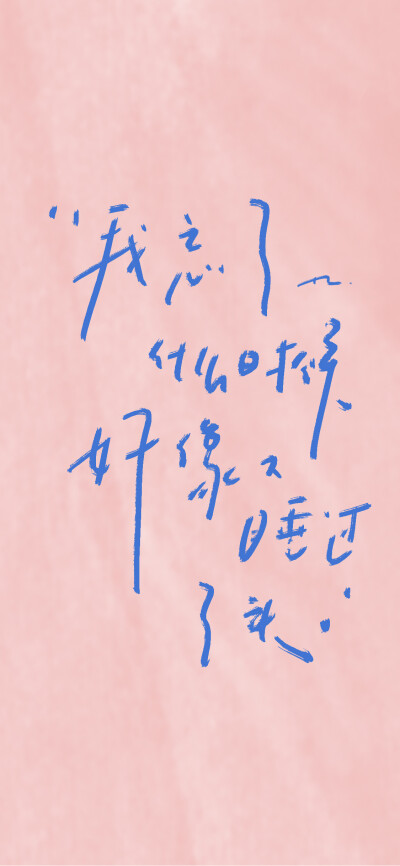 "我忘了~
什么时候
好像又
睡过
了头."